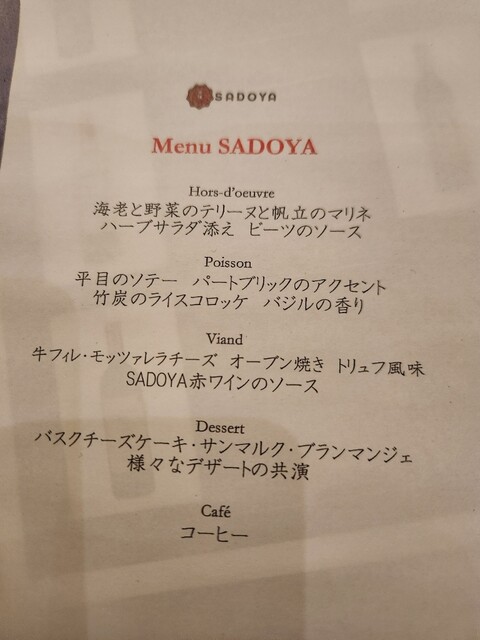 SADOYA
Menu SADOYA
Hors-d'oeuvre
海老と野菜のテリーヌと帆立のマリネ
ハーブサラダ添え ビーツのソース
Poisson
平目のソテー パートブリックのアクセント
竹炭のライスコロッケ バジルの香り
Viand
牛フィレ・モッツァレラチーズ オーブン焼き トリュフ風味
SADOYA赤ワインのソース
Dessert
バスクチーズケーキ・サンマルク・ブランマンジェ
様々なデザートの共演
Café
コーヒー